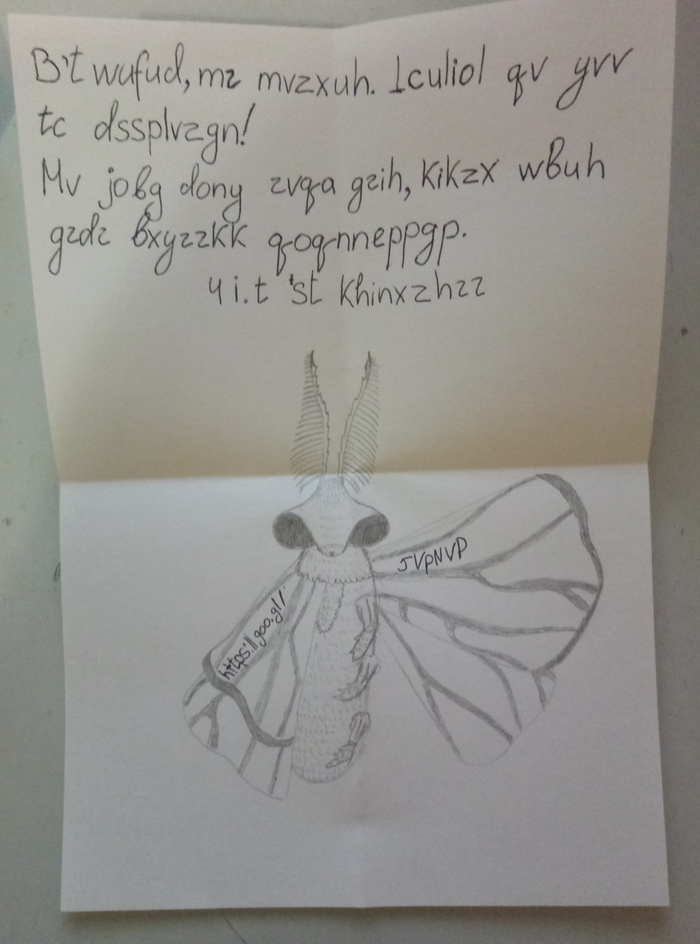 B't wufud, mz mvzxuh. Iculiol qv yvv
tc dssplvzgn!
Mv jobg dony zvqa gzih, kikzx wbuh
gzdz bxyzzkk qoqnneppgp.
4 i.t 'st khinxzhzz
5VpNVP
https://goo.gl/